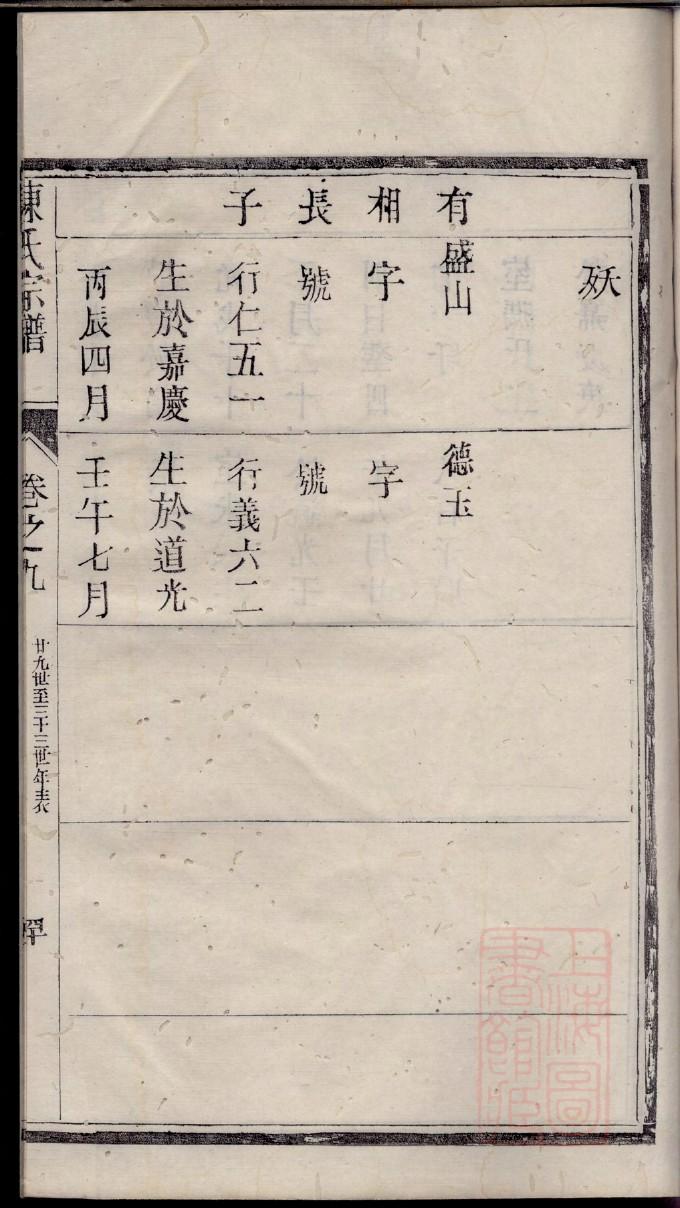 殀
有相長子
盛山
字
號
行仁五一
生於嘉慶
丙辰四月
德玉
字
號
行義六二
生於道光
壬午七月
陳氏宗譜
卷之九
廿九世至三十三世年表
上海圖書館藏